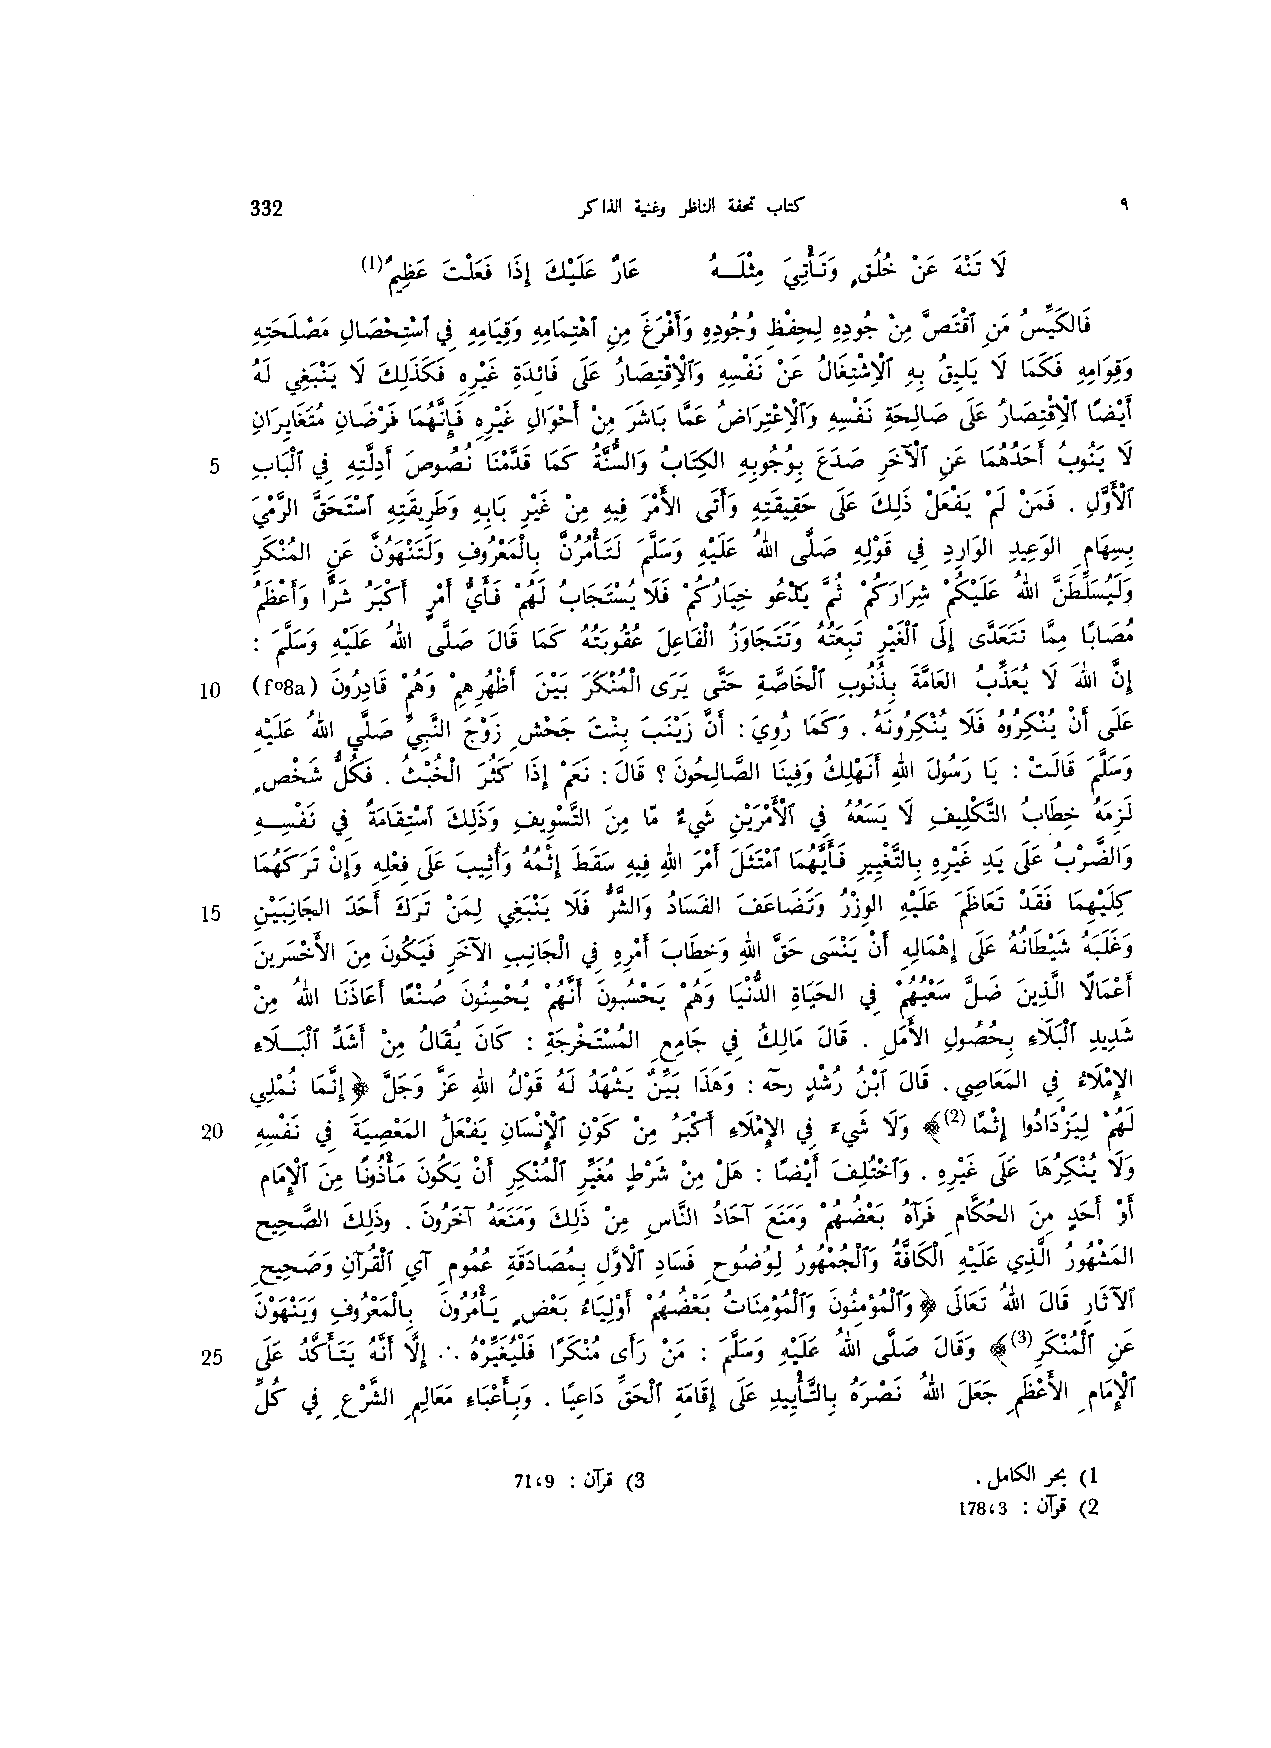 ٩ كتاب تحفة الناظر وغنية الذاكر 332
لَا تَنْهَ عَنْ خُلُقٍ وَتَأْتِيَ مِثْلَـهُ عَارٌ عَلَيْكَ إِذَا فَعَلْتَ عَظِيمُ (1)
فَالكَيِّسُ مَنِ ٱقْتَصَّ مِنْ جُودِهِ لِحِفْظِ وُجُودِهِ وَأَفْرَغَ مِنِ ٱهْتِمَامِهِ وَقِيَامِهِ فِي ٱسْتِحْصَالِ مَصْلَحَتِهِ
وَقِوَامِهِ فَكَمَا لَا يَلِيقُ بِهِ ٱلْاشْتِغَالُ عَنْ نَفْسِهِ وَٱلْاِقْتِصَارُ عَلَى فَائِدَةِ غَيْرِهِ فَكَذَلِكَ لَا يَنْبَغِي لَهُ
أَيْضًا ٱلْاِقْتِصَارُ عَلَى صَالِحَةِ نَفْسِهِ وَٱلْاعْتِرَاضُ عَمَّا بَاشَرَ مِنْ أَحْوَالِ غَيْرِهِ فَإِنَّهُمَا فَرْضَانِ مُتَغَايِرَانِ
5 لَا يَنُوبُ أَحَدُهُمَا عَنِ ٱلْآخَرِ صَدَعَ بِوُجُوبِهِ الكِتَابُ وَالسُّنَّةُ كَمَا قَدَّمْنَا نُصُوصَ أَدِلَّتِهِ فِي ٱلْبَابِ
ٱلْأَوَّلِ . فَمَنْ لَمْ يَفْعَلْ ذَلِكَ عَلَى حَقِيقَتِهِ وَأَتَى الأَمْرَ فِيهِ مِنْ غَيْرِ بَابِهِ وَطَرِيقَتِهِ ٱسْتَحَقَّ الرَّمْيَ
بِسِهَامِ الوَعِيدِ الوَارِدِ فِي قَوْلِهِ صَلَّى اللهُ عَلَيْهِ وَسَلَّمَ لَتَأْمُرُنَّ بِالْمَعْرُوفِ وَلَتَنْهَوُنَّ عَنِ المُنْكَرِ
وَلَيُسَلِّطَنَّ اللهُ عَلَيْكُمْ شِرَارَكُمْ ثُمَّ يَدْعُو خِيَارُكُمْ فَلَا يُسْتَجَابُ لَهُمْ فَأَيُّ أَمْرٍ أَكْبَرُ شَرًّا وَأَعْظَمُ
مُصَابًا مِمَّا تَتَعَدَّى إِلَى ٱلْغَيْرِ تَبِعَتُهُ وَتَتَجَاوَزُ الْفَاعِلَ عُقُوبَتُهُ كَمَا قَالَ صَلَّى اللهُ عَلَيْهِ وَسَلَّمَ :
10 إِنَّ اللهَ لَا يُعَذِّبُ العَامَّةَ بِذُنُوبِ ٱلْخَاصَّةِ حَتَّى يَرَى الْمُنْكَرَ بَيْنَ أَظْهُرِهِمْ وَهُمْ قَادِرُونَ (f°8a)
عَلَى أَنْ يُنْكِرُوهُ فَلَا يُنْكِرُونَهُ . وَكَمَا رُوِيَ : أَنَّ زَيْنَبَ بِنْتَ جَحْشٍ زَوْجَ النَّبِيِّ صَلَّى اللهُ عَلَيْهِ
وَسَلَّمَ قَالَتْ : يَا رَسُولَ اللهِ أَنَهْلِكُ وَفِينَا الصَّالِحُونَ ؟ قَالَ : نَعَمْ إِذَا كَثُرَ الْخُبْثُ . فَكُلُّ شَخْصٍ
لَزِمَهُ خِطَابُ التَّكْلِيفِ لَا يَسَعُهُ فِي ٱلْأَمْرَيْنِ شَيْءٌ مَّا مِنَ التَّسْوِيفِ وَذَلِكَ ٱسْتِقَامَةٌ فِي نَفْسِـهِ
وَالضَّرْبُ عَلَى يَدِ غَيْرِهِ بِالتَّغْيِيرِ فَأَيُّهُمَا ٱمْتَثَلَ أَمْرَ اللهِ فِيهِ سَقَطَ إِثْمُهُ وَأُثِيبَ عَلَى فِعْلِهِ وَإِنْ تَرَكَهُمَا
15 كِلَيْهِمَا فَقَدْ تَعَاظَمَ عَلَيْهِ الوِزْرُ وَتَضَاعَفَ الفَسَادُ وَالشَّرُّ فَلَا يَنْبَغِي لِمَنْ تَرَكَ أَحَدَ الجَانِبَيْنِ
وَغَلَبَهُ شَيْطَانُهُ عَلَى إِهْمَالِهِ أَنْ يَنْسَى حَقَّ اللهِ وَخِطَابَ أَمْرِهِ فِي الْجَانِبِ الْآخَرِ فَيَكُونَ مِنَ الأَخْسَرِينَ
أَعْمَالًا الَّذِينَ ضَلَّ سَعْيُهُمْ فِي الحَيَاةِ الدُّنْيَا وَهُمْ يَحْسَبُونَ أَنَّهُمْ يُحْسِنُونَ صُنْعًا أَعَاذَنَا اللهُ مِنْ
شَدِيدِ ٱلْبَلَاءِ بِحُصُولِ الأَمَلِ . قَالَ مَالِكٌ فِي جَامِعِ المُسْتَخْرَجَةِ : كَانَ يُقَالُ مِنْ أَشَدِّ ٱلْبَـلَاءِ
الإِمْلَاءُ فِي المَعَاصِي . قَالَ ٱبْنُ رُشْدٍ رحَه : وَهَذَا بَيِّنٌ يَشْهَدُ لَهُ قَوْلُ اللهِ عَزَّ وَجَلَّ ﴿ إِنَّمَا نُمْلِي
20 لَهُمْ لِيَزْدَادُوا إِثْمًا (2)﴾ وَلَا شَيْءَ فِي الإِمْلَاءِ أَكْبَرُ مِنْ كَوْنِ ٱلْإِنْسَانِ يَفْعَلُ المَعْصِيَةَ فِي نَفْسِهِ
وَلَا يُنْكِرُهَا عَلَى غَيْرِهِ . وَٱخْتُلِفَ أَيْضًا : هَلْ مِنْ شَرْطِ مُغَيِّرِ ٱلْمُنْكَرِ أَنْ يَكُونَ مَأْذُونًا مِنَ ٱلْإِمَامِ
أَوْ أَحَدٍ مِنَ الحُكَّامِ فَرَآهُ بَعْضُهُمْ وَمَنَعَ آحَادُ النَّاسِ مِنْ ذَلِكَ وَمَنَعَهُ آخَرُونَ . وَذَلِكَ الصَّحِيح
المَشْهُورُ الَّذِي عَلَيْهِ ٱلْكَافَّةُ وَٱلْجُمْهُورُ لِوُضُوحِ فَسَادِ ٱلْأَوَّلِ بِمُصَادَقَةِ عُمُومِ آيِ ٱلْقُرْآنِ وَصَحِيحِ
ٱلْآثَارِ قَالَ اللهُ تَعَالَى ﴿ وَٱلْمُؤْمِنُونَ وَٱلْمُؤْمِنَاتُ بَعْضُهُمْ أَوْلِيَاءُ بَعْضٍ يَأْمُرُونَ بِالْمَعْرُوفِ وَيَنْهَوْنَ
25 عَنِ ٱلْمُنْكَرِ (3)﴾ وَقَالَ صَلَّى اللهُ عَلَيْهِ وَسَلَّمَ : مَنْ رَأَى مُنْكَرًا فَلْيُغَيِّرْهُ ∴ إِلَّا أَنَّهُ يَتَأَكَّدُ عَلَى
ٱلْإِمَامِ الأَعْظَمِ جَعَلَ اللهُ نَصْرَهُ بِالتَّأْيِيدِ عَلَى إِقَامَةِ ٱلْحَقِّ دَاعِيًا . وَبِأَعْبَاءِ مَعَالِمِ الشَّرْعِ فِي كُلِّ
1) بحر الكامل .
2) قرآن : 3،178
3) قرآن : 9،71